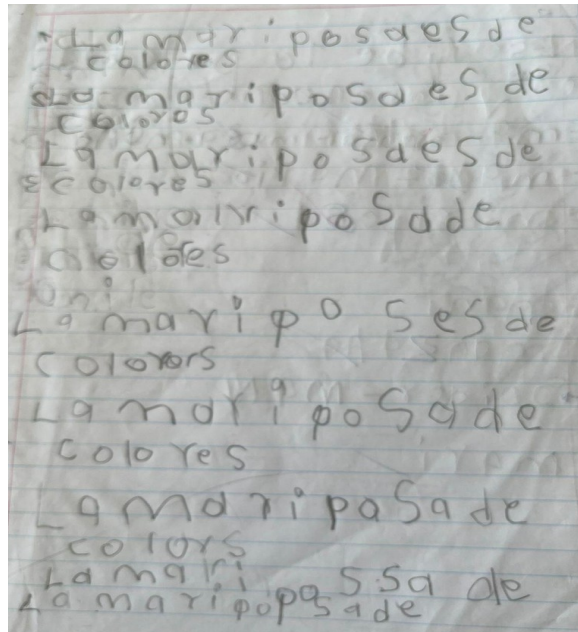 La mariposaesde
colores
La mariposaesde
colores
La mariposaesde
colores
La mairiposade
colores
La maripo sesde
colorors
La mariposade
colores
La maripasade
colors
La mari posSsa de
La maripoposade